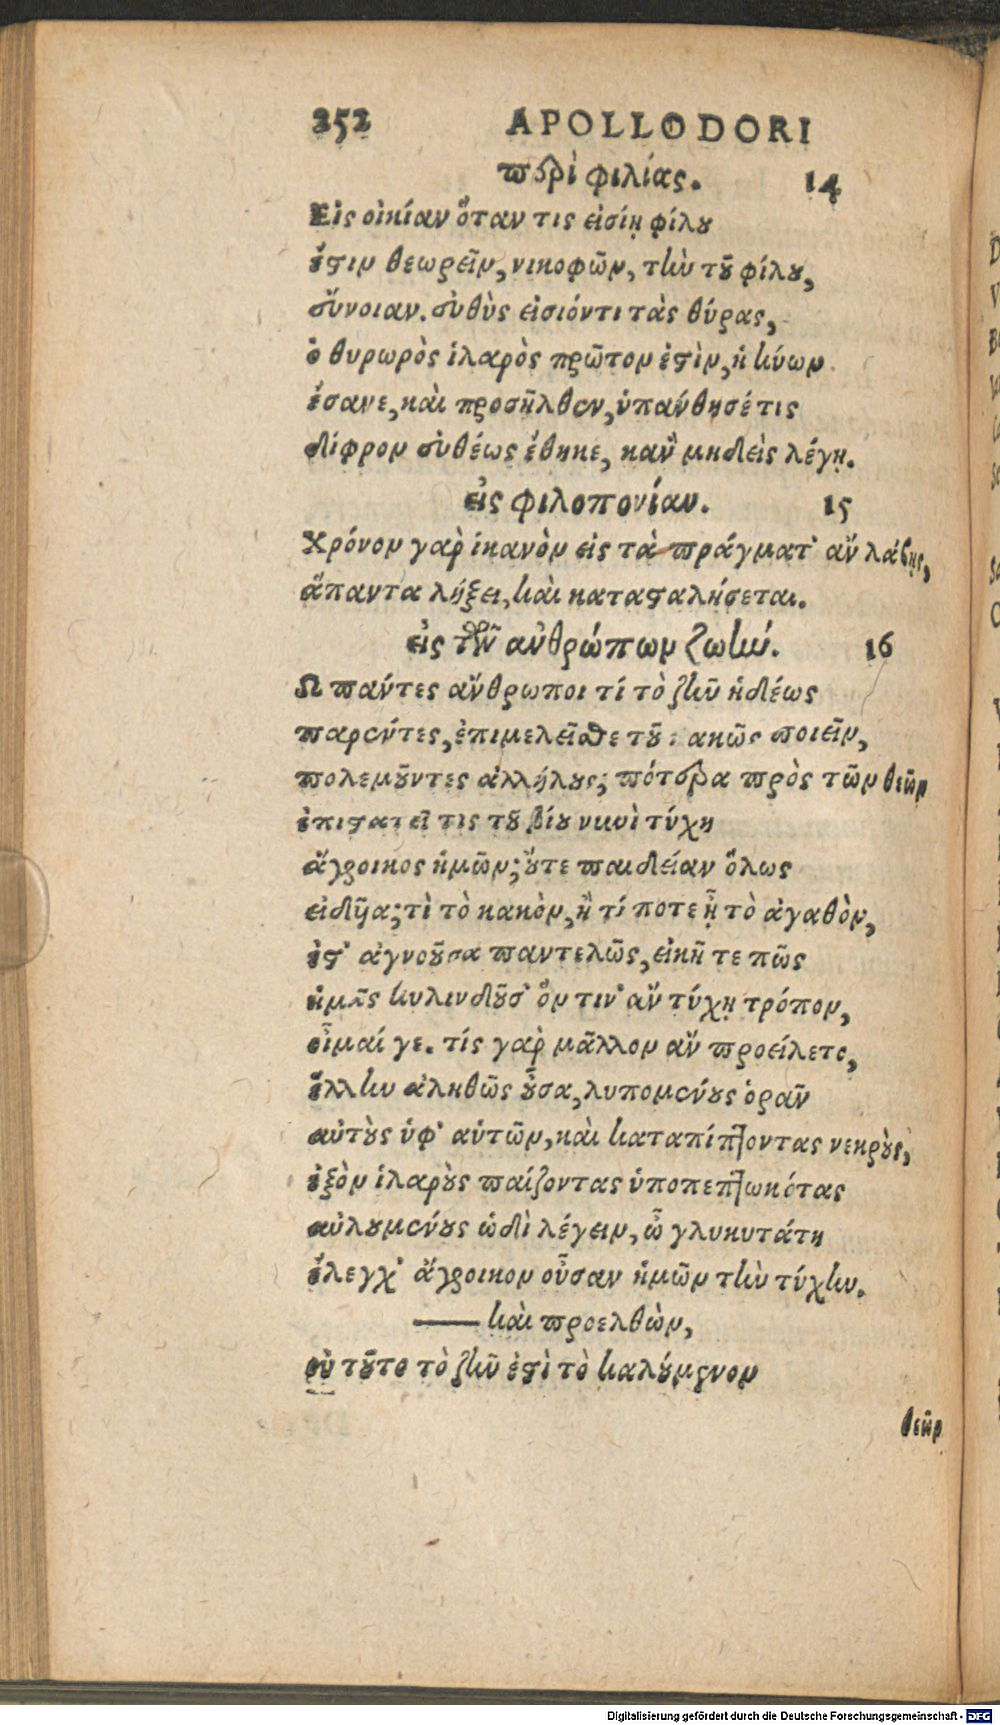 252 APOLLODORI
περὶ φιλίας. 14
Εἰς οἰκίαν ὅταν τις εἰσίῃ φίλου
ἔστιν θεωρεῖν, νικοφῶν, τὴν τοῦ φίλου,
σύνοιαν. εὐθὺς εἰσιόντι τὰς θύρας,
ὁ θυρωρὸς ἱλαρὸς πρῶτον ἐστὶν, ἡ κύων
ἔσανε, καὶ προσῆλθεν, ὑπαύθησέ τις
δίφρον εὐθέως ἔθηκε, κἂν μηδεὶς λέγῃ.
εἰς φιλοπονίαν. 15
Χρόνον γὰρ ἱκανὸν εἰς τὰ πράγματ' ἂν λάβῃς,
ἅπαντα λήξει, καὶ κατασταλήσεται.
εἰς τὴν ἀνθρώπων ζωήν. 16
Ω πάντες ἄνθρωποι τί τὸ ζῆν ἡδέως
παρέντες, ἐπιμελεῖσθε τοῦ ακῶς ποιεῖν,
πολεμοῦντες ἀλλήλους; πότερα πρὸς τῶν θεῶν
ἐπιστατεῖ τις τοῦ βίου νυνὶ τύχη
ἄγροικος ἡμῶν; οὔτε παιδείαν ὅλως
εἰδῆα; τὶ τὸ κακὸν, ἢ τί ποτε ᾖ τὸ ἀγαθὸν,
ἔστ' ἀγνοοῦσα παντελῶς, εἰκῆ τε πῶς
ἡμᾶς κυλινδοῦσ' ὅν τιν' ἂν τύχῃ τρόπον,
οἶμαί γε. τίς γὰρ μᾶλλον ἂν προείλετο,
ἕλλην ἀληθῶς οὖσα, λυπομένους ὁρᾶν
αὐτοὺς ὑφ' αὑτῶν, καὶ καταπίπτοντας νεκροὺς,
ἐξὸν ἱλαροὺς παίζοντας ὑποπεπτωκότας
αὐλουμένους ὡδὶ λέγειν, ὦ γλυκυτάτη
ἔλεγχ' ἄγροικον οὖσαν ἡμῶν τὴν τύχην.
—— καὶ προελθὼν,
οὐ τοῦτο τὸ ζῆν ἐστὶ τὸ καλούμενον
θεῶν
Digitalisierung gefördert durch die Deutsche Forschungsgemeinschaft - DFG